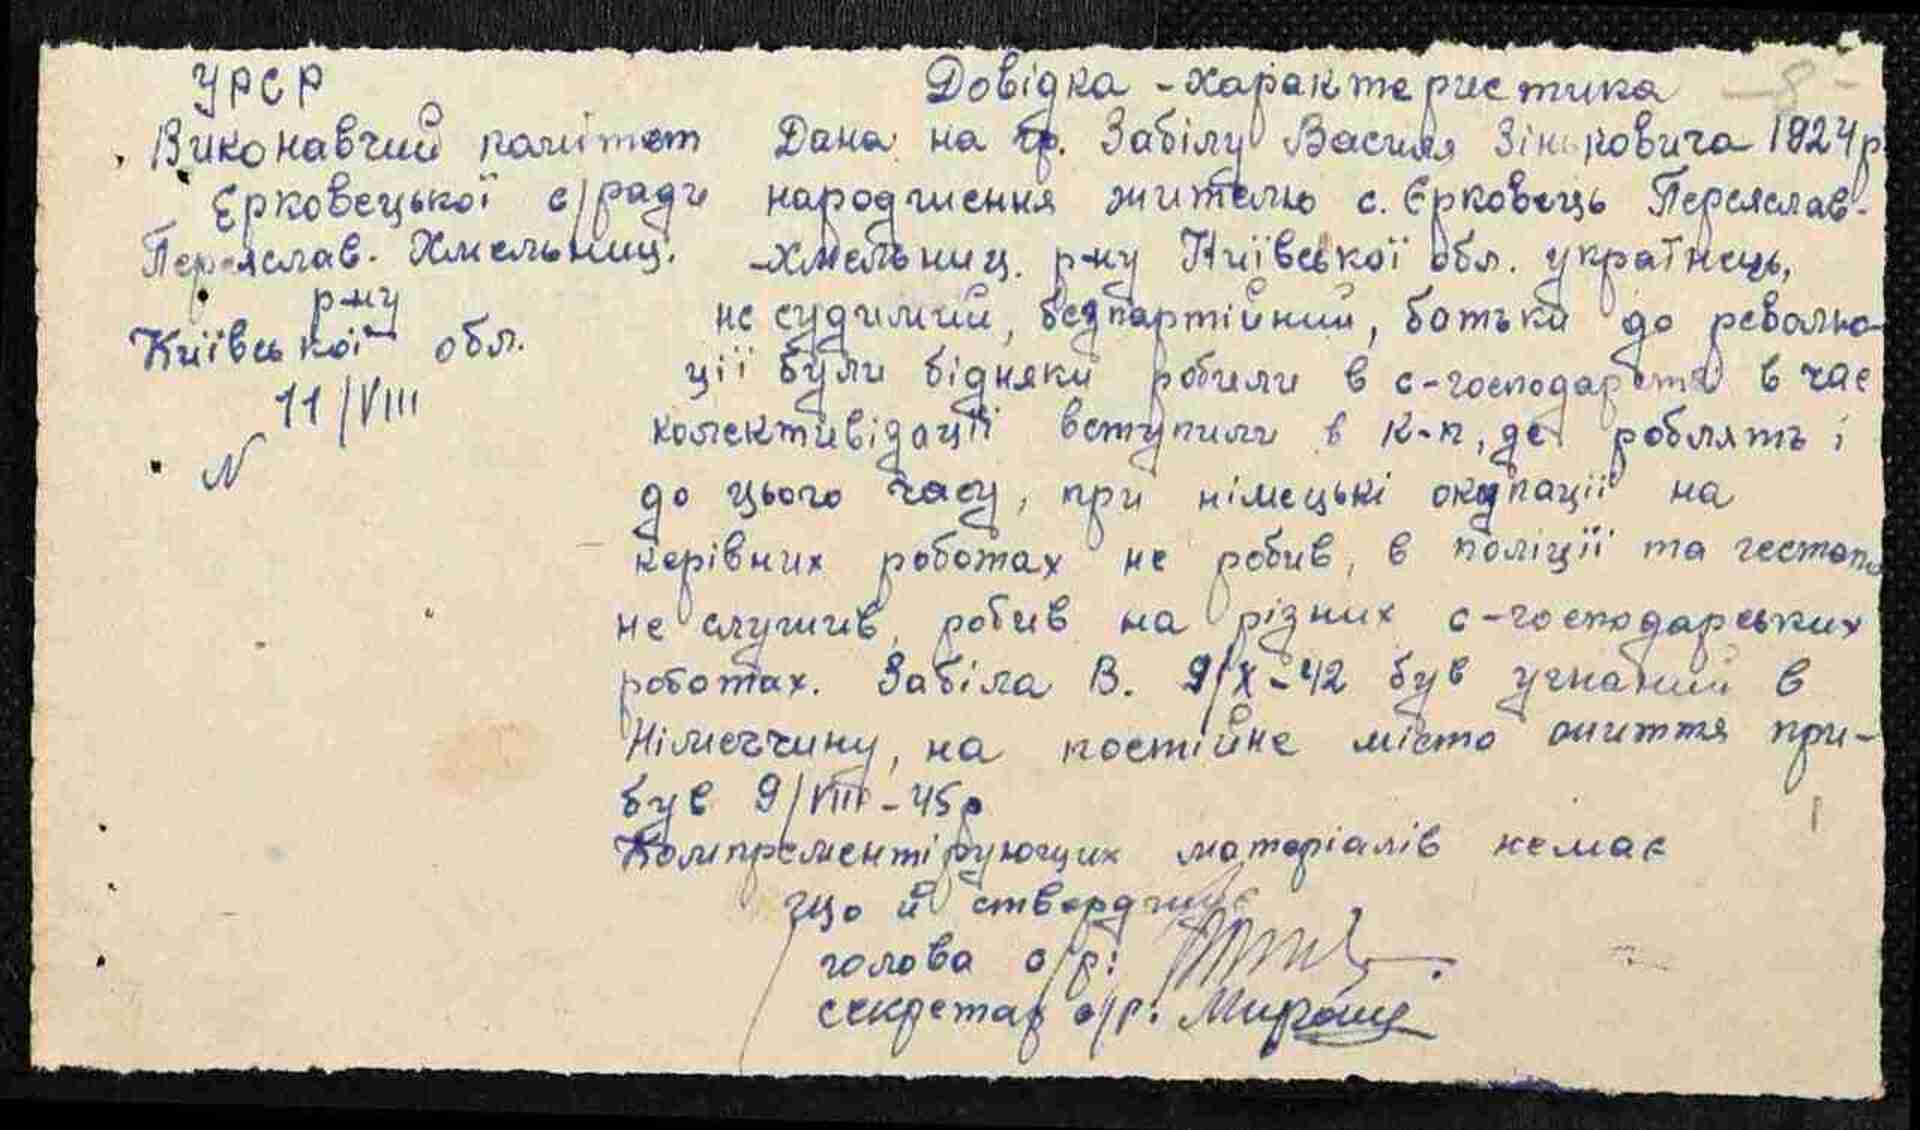 УРСР
Виконавчий комітет
Єрковецької с/ради
Переяслав. Хмельниц.
р-ну
Київської обл.
11/VIII
N
- 8 -
Довідка - характеристика
Дана на гр. Забілу Василя Зіньковича 1924 р.
народження жителю с. Єрковець Переяслав-
-Хмельниц. р-ну Київської обл. українець,
не судимий, безпартійний, батьки до револю-
ції були бідняки робили в с-господарстві в час
колективізації вступили в к-п, де роблять і
до цього часу, при німецькі окупації на
керівних роботах не робив, в поліції та гестапо
не служив, робив на різних с-господарських
роботах. Забіла В. 9/X-42 був угнаний в
Німеччину, на постійне місто життя при-
був 9/VIII-45р
Компрементірующих матеріалів немає
що й стверджує
голова с/р:
секретар с/р: